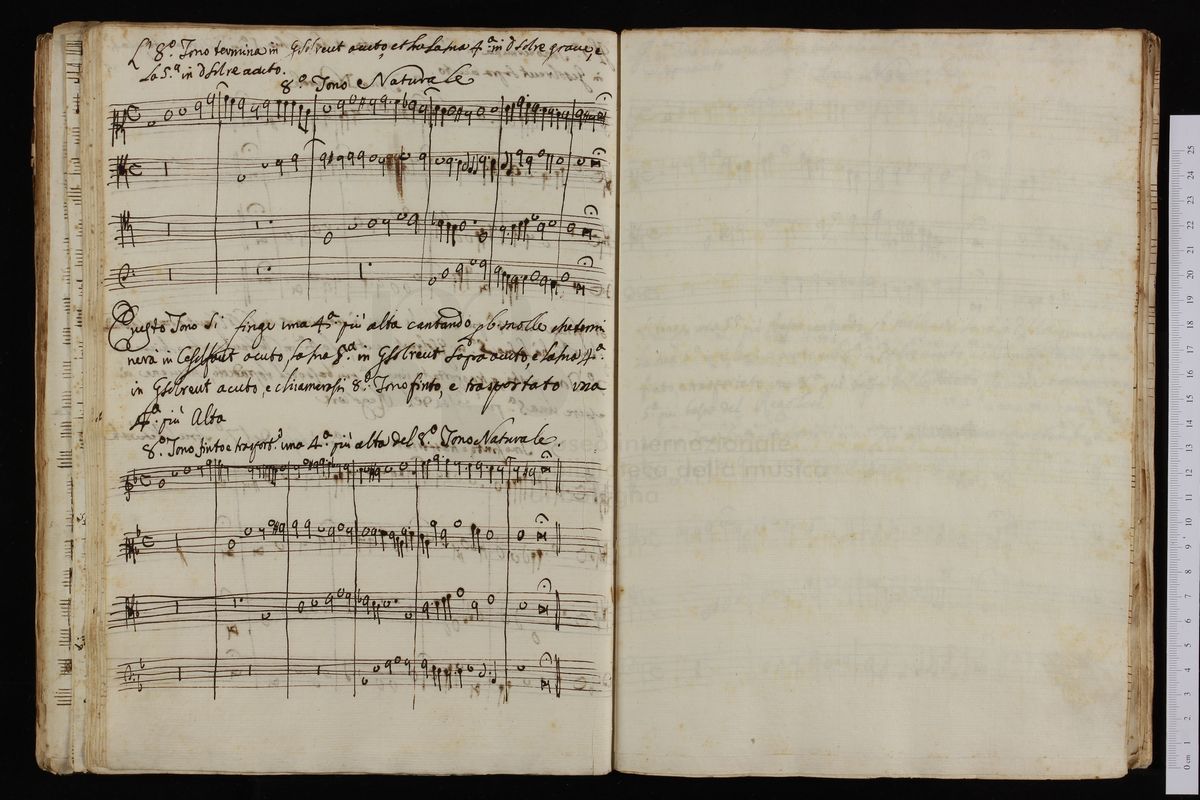 L' 8.º Tono termina in Gsolreut acuto, et ha la sua 4.ª in dsolre grave, e
la 5.ª in dsolre acuto.
8.º Tono Naturale
Questo Tono si finge una 4.ª più alta cantando p b. molle che termi
nerà in Cesolfaut acuto la sua 5.ª in Gsolreut sopra acuto, e la sua 4.ª
in Gsolreut acuto, e chiamerassi 8.º Tono finto, e trasportato una
4.ª più Alta
8.º Tono finto e trasport.º una 4.ª più alta del 8.º Tono Naturale
Museo internazionale
e biblioteca della musica
di Bologna
0 cm 1 2 3 4 5 6 7 8 9 10 11 12 13 14 15 16 17 18 19 20 21 22 23 24 25